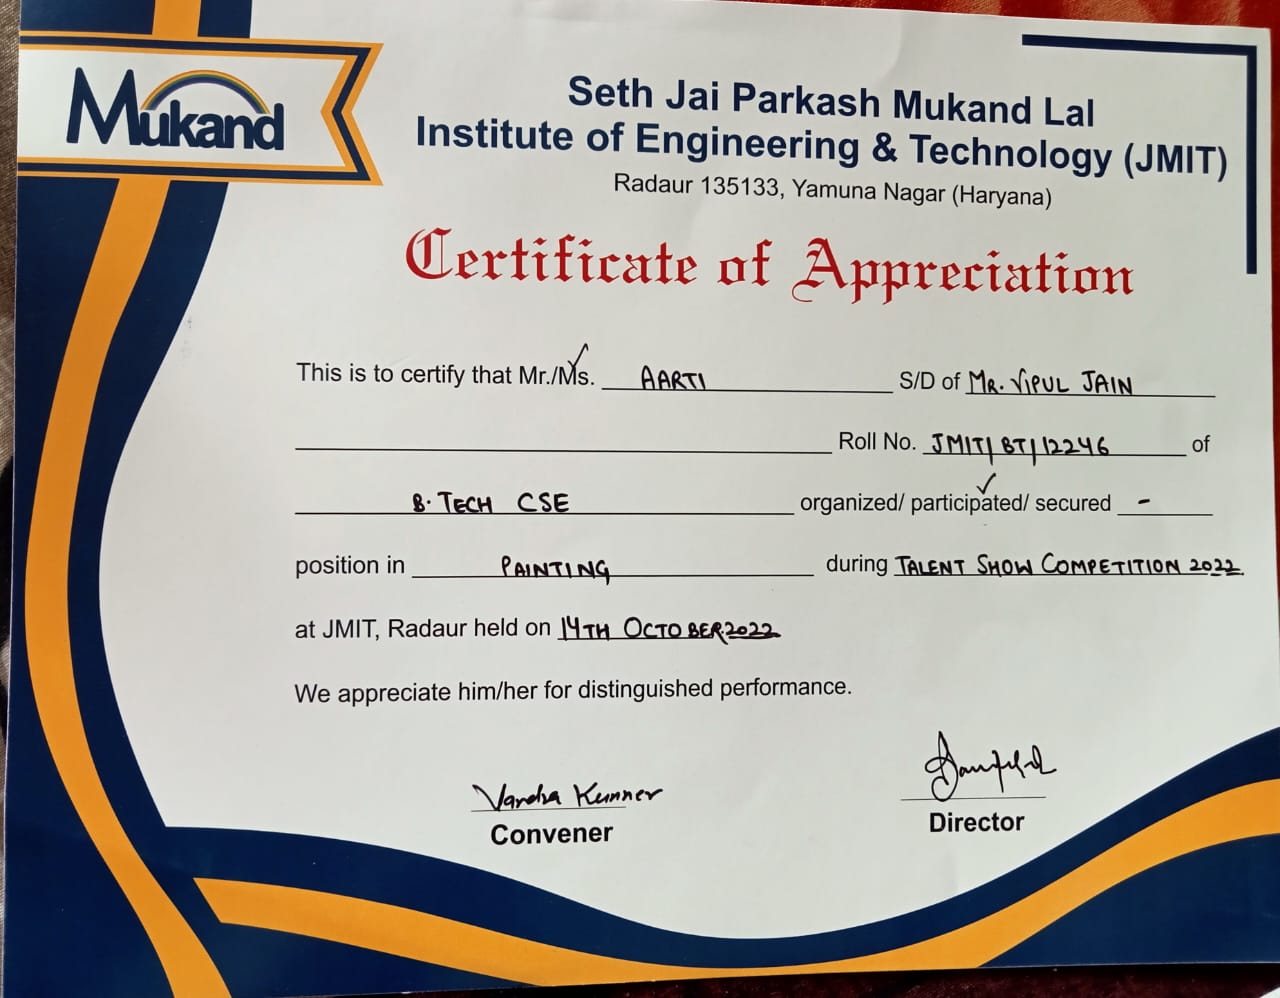 Mukand
Seth Jai Parkash Mukand Lal
Institute of Engineering & Technology (JMIT)
Radaur 135133, Yamuna Nagar (Haryana)
Certificate of Appreciation
This is to certify that Mr./Ms. AARTI S/D of MR. VIPUL JAIN
Roll No. JMIT/BT/12246 of
B. TECH CSE organized/ participated/ secured -
position in PAINTING during TALENT SHOW COMPETITION 2022
at JMIT, Radaur held on 14TH OCTOBER 2022
We appreciate him/her for distinguished performance.
Convener
Director